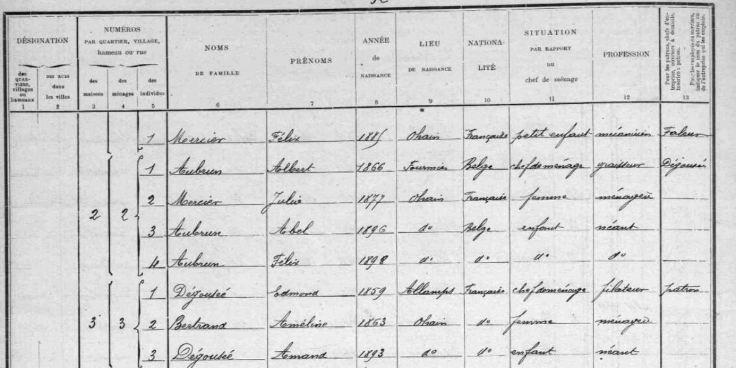 DÉSIGNATION NUMÉROS PAR QUARTIER, VILLAGE, hameau ou rue NOMS DE FAMILLE PRÉNOMS ANNÉE de NAISSANCE LIEU DE NAISSANCE NATIONALITÉ SITUATION PAR RAPPORT au chef de ménage PROFESSION
des quartiers, villages ou hameaux des rues dans les villes des maisons des ménages des individus
1 2 3 4 5 6 7 8 9 10 11 12 13
1 Mercier Félix 1885 Ohain Française petit enfant mécanicien
1 Aubrun Albert 1866 Belge chef de ménage Dégousée
2 Mercier Julia 1877 Ohain Française femme ménagère
2 2 3 Aubrun Abel 1896 do Belge enfant néant
4 Aubrun Félix 1898 do do do do
1 Dégousée Edmond 1859 Allamps Française chef de ménage filateur patron
3 3 2 Bertrand Améline 1863 Ohain do femme ménagère
3 Dégousée Armand 1893 do do enfant néant